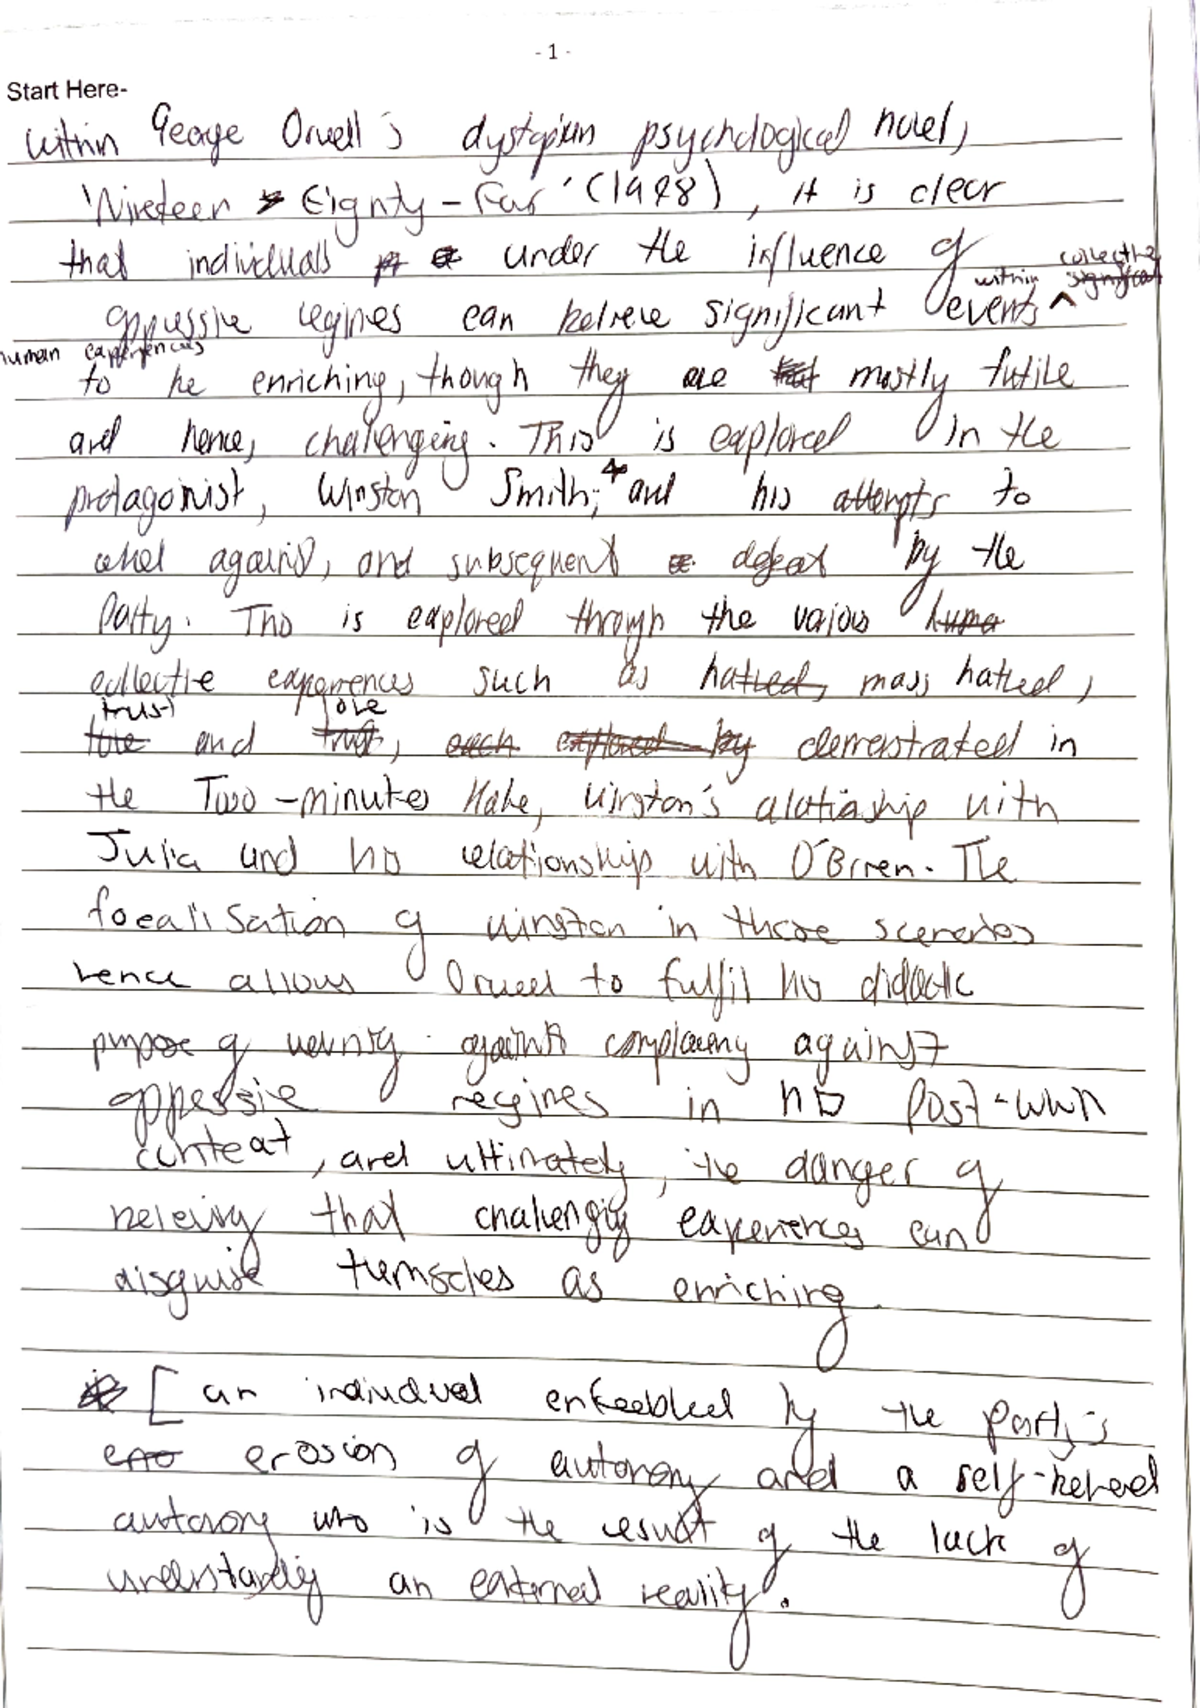 - 1 -
Start Here-
within George Orwell's dystopian psychological novel,
'Nineteen Eighty-Four' (1948), it is clear
that individuals under the influence of
oppressive regimes can believe significant events ^ within collective
human experiences
to be enriching, though they are mostly futile
and hence, challenging. This is explored in the
protagonist, Winston Smith, and his attempts to
rebel against, and subsequent defeat by the
Party. This is explored through the various
collective experiences such as mass hatred,
trust and love, demonstrated in
the Two-minutes Hate, Winston's relationship with
Julia and his relationship with O'Brien. The
focalisation of Winston in these scenarios
hence allows Orwell to fulfil his didactic
purpose of warning against complacency against
oppressive regimes in his post-WWII
context, and ultimately, the danger of
believing that challenging experiences can
disguise themselves as enriching.
[ an individual enfeebled by the Party's
erosion of autonomy and a self-
autonomy who is the result of the lack of
understanding an external reality.